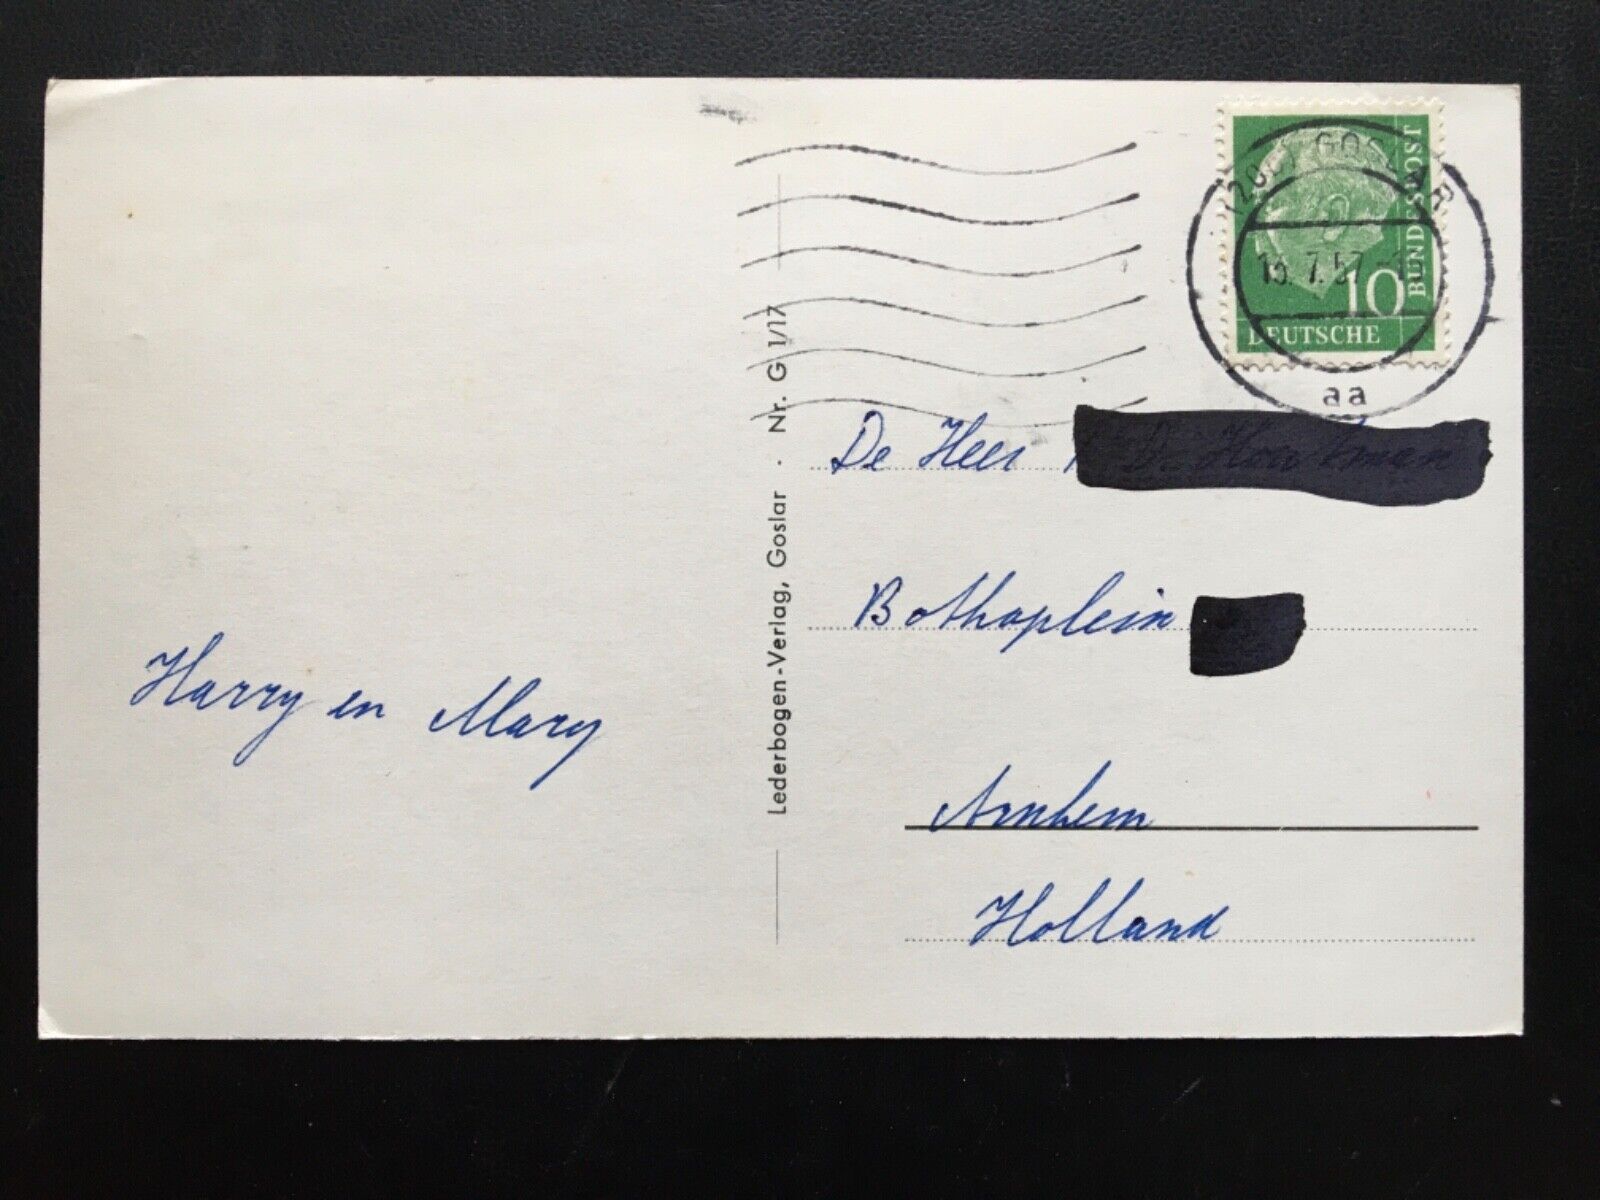 Harry en Mary
Lederbogen-Verlag, Goslar · Nr. G 1/17
GOSLAR
7.57
aa
10
DEUTSCHE
BUNDESPOST
De Heer
Bothaplein
Arnhem
Holland